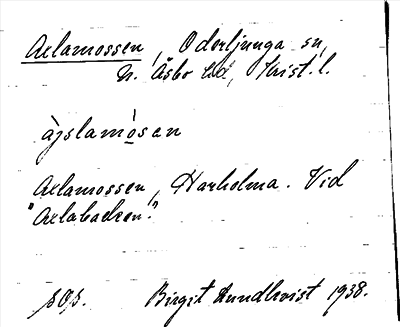 Axlamossen, Oderljunga sn,
N. Åsbo hd, Krist. l.
àjslamósen
Axlamossen, Harholma. Vid
"Axlabacken."
Birgit Lundkvist 1938.